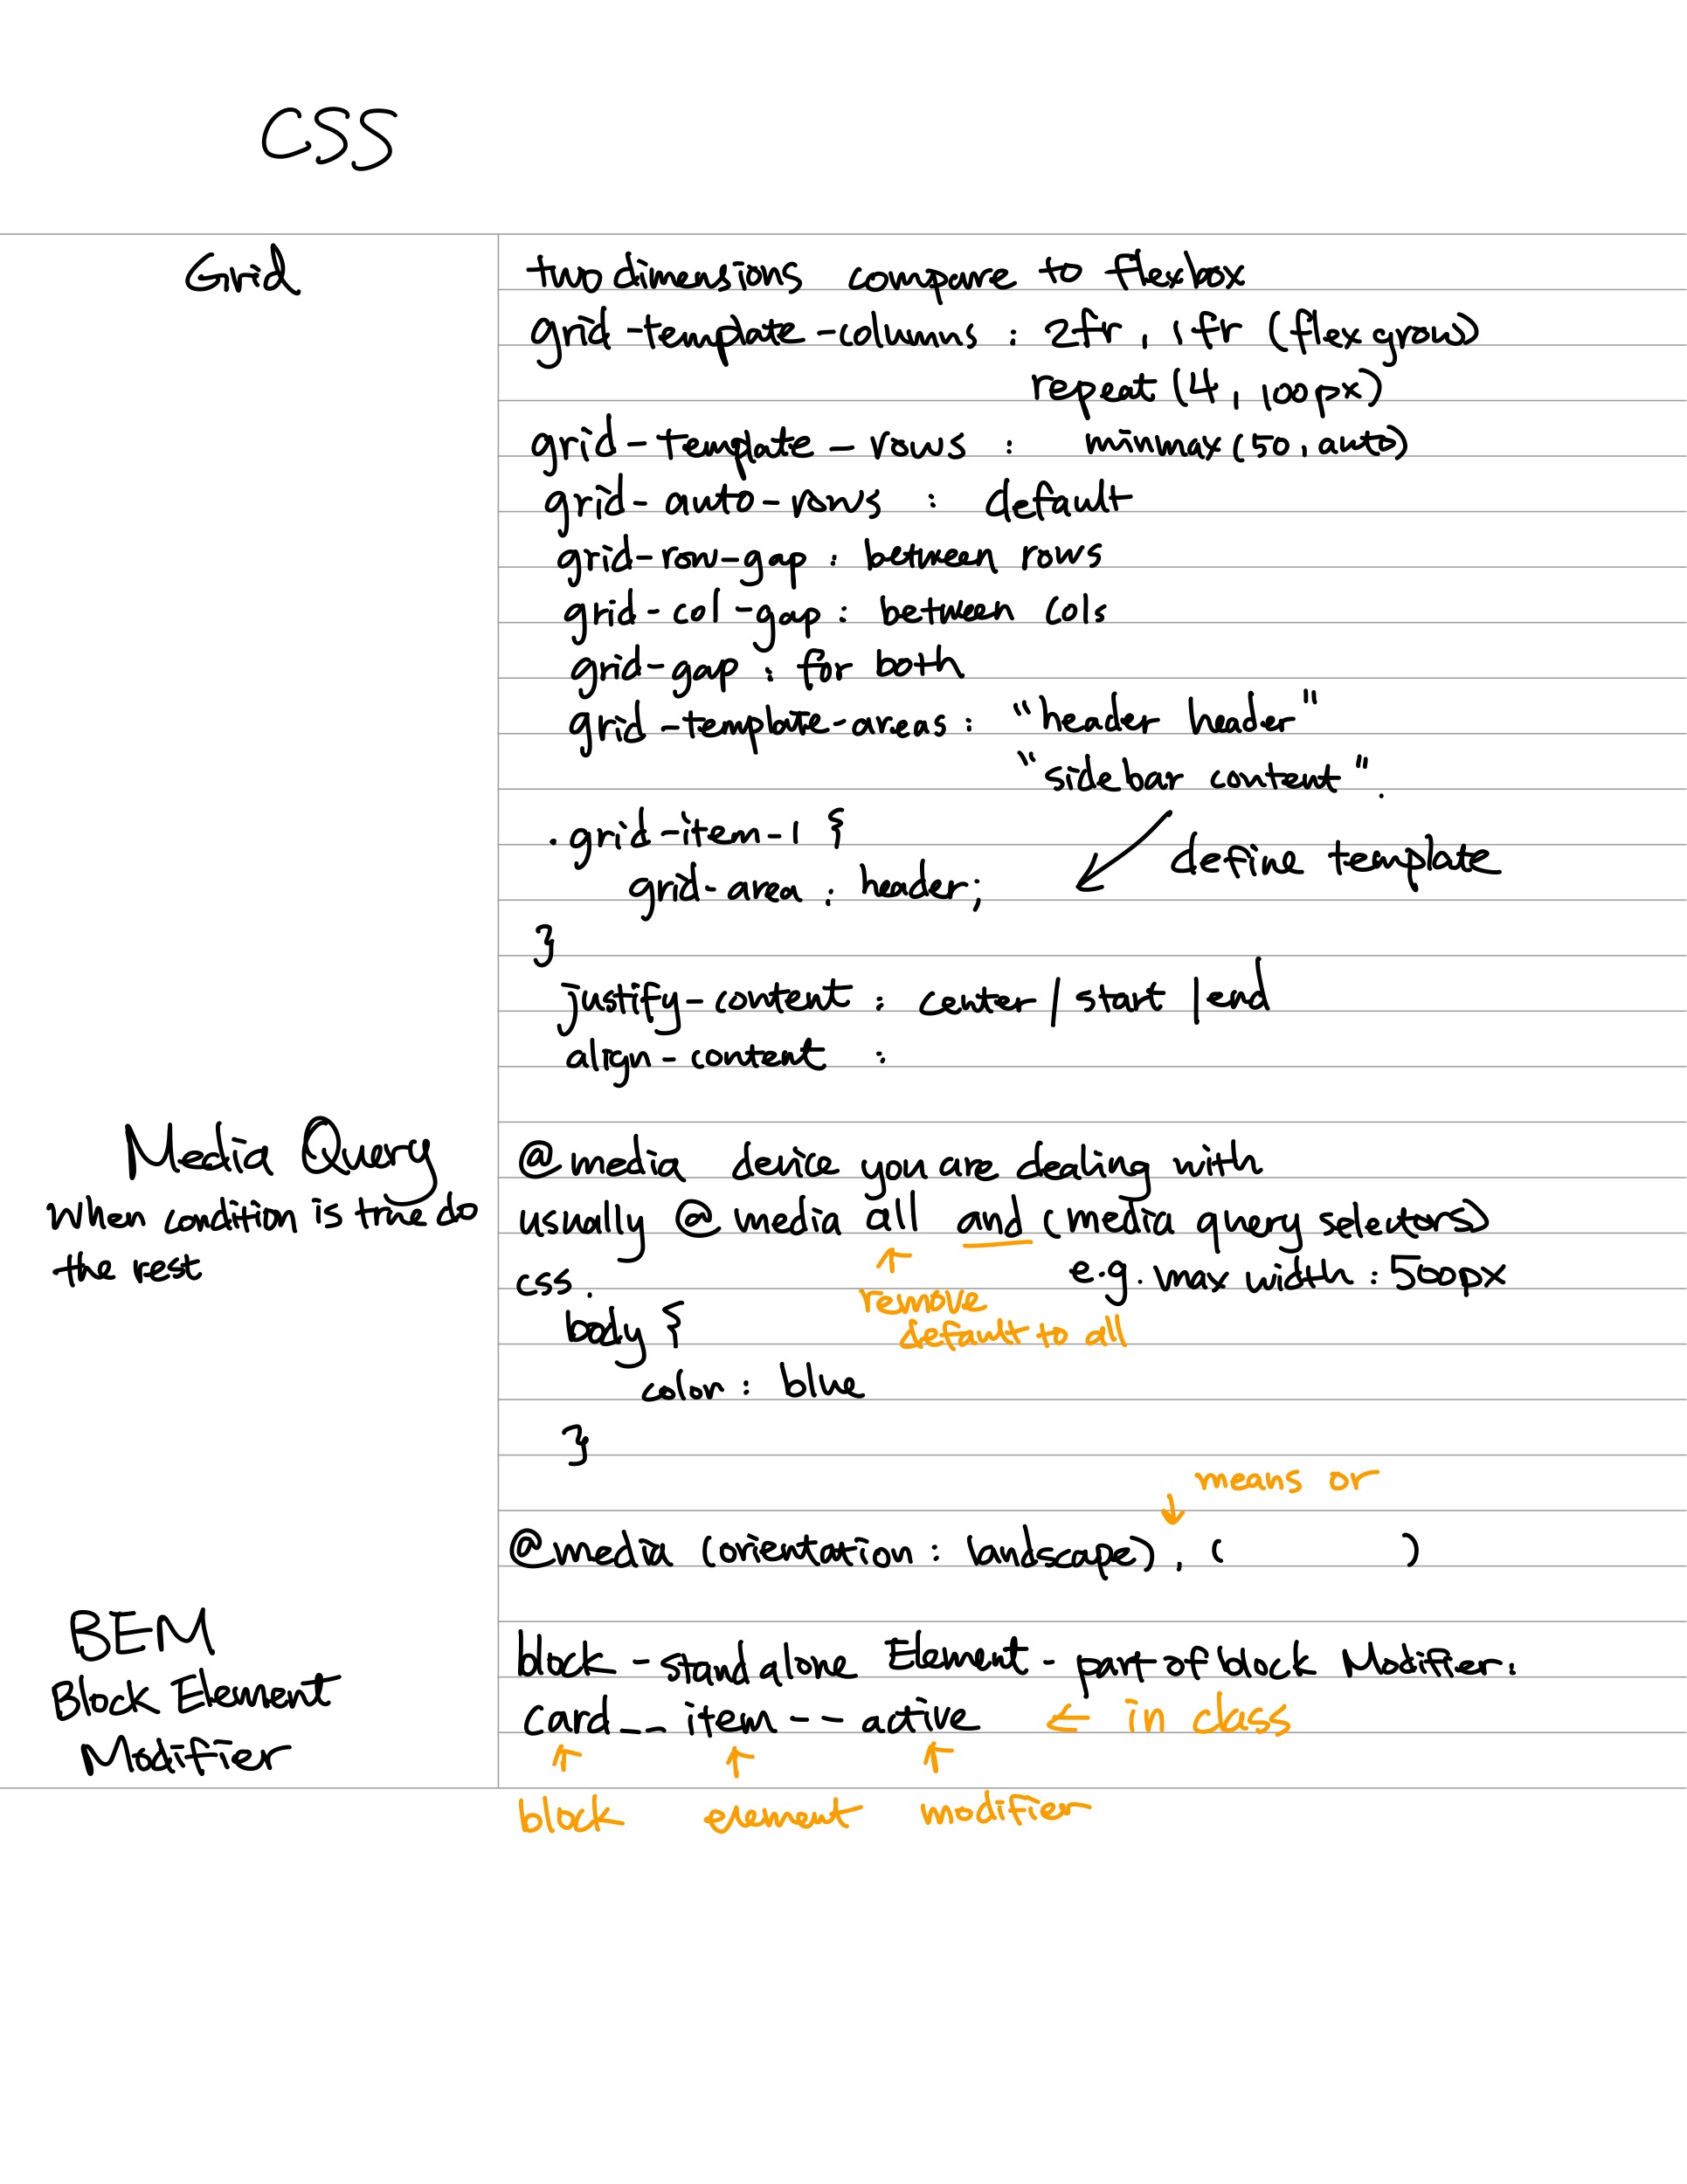 CSS
Grid
two dimensions compare to flexbox
grid-template-columns : 2fr, 1fr (flex grow)
repeat (4, 100px)
grid-template-rows : minmax (50, auto)
grid-auto-rows : default
grid-row-gap : between rows
grid-col-gap : between cols
grid-gap : for both
grid-template-areas : "header header"
"sidebar content".
.grid-item-1 {
define template
grid-area : header;
}
justify-content : center / start | end
align-content :
Media Query
When condition is true do
the rest
@media device you are dealing with
usually @media all and (media query selectors)
css.
e.g. max width : 500px
remove
default to all
body {
color : blue
}
means or
@media (orientation : landscape), ( )
BEM
Block Element
Modifier
block - stand alone Element - part of block Modifier.
card__item--active ← in class
block element modifier